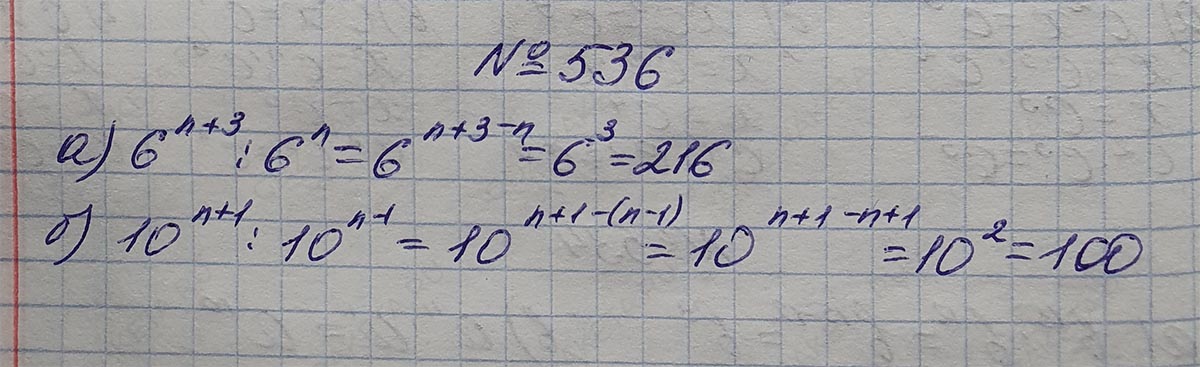 № 536
а) 6^{n+3} : 6^n = 6^{n+3-n} = 6^3 = 216
б) 10^{n+1} : 10^{n-1} = 10^{n+1-(n-1)} = 10^{n+1-n+1} = 10^2 = 100